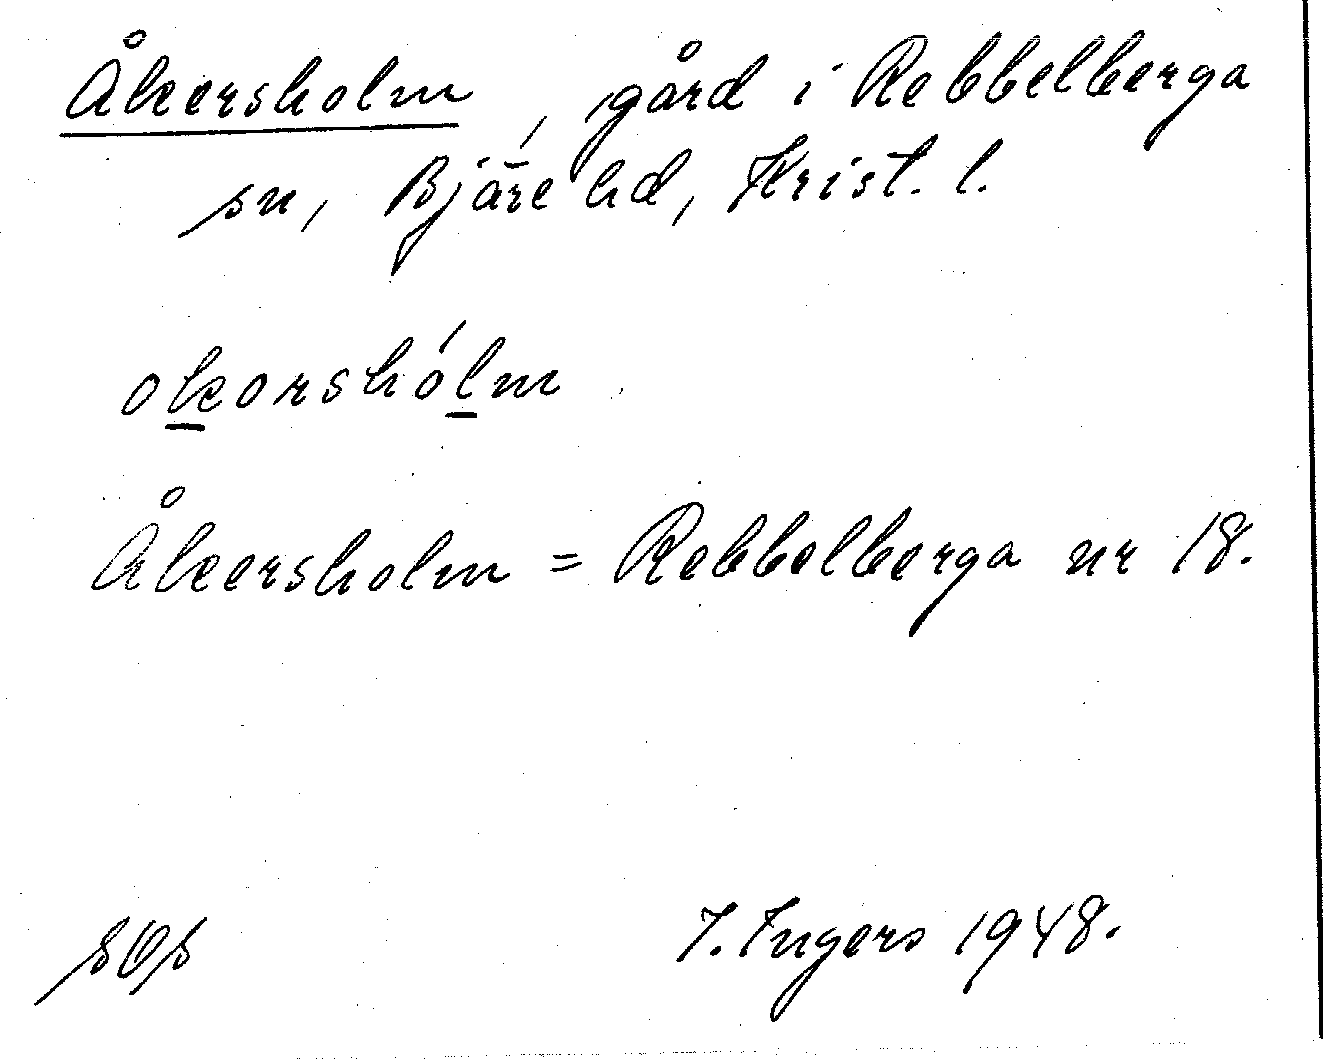 Åkersholm, gård i Rebbelberga
sn, Bjäre hd, Krist. l.
okorshólm
Åkersholm = Rebbelberga nr 18.
I. Ingers 1948.